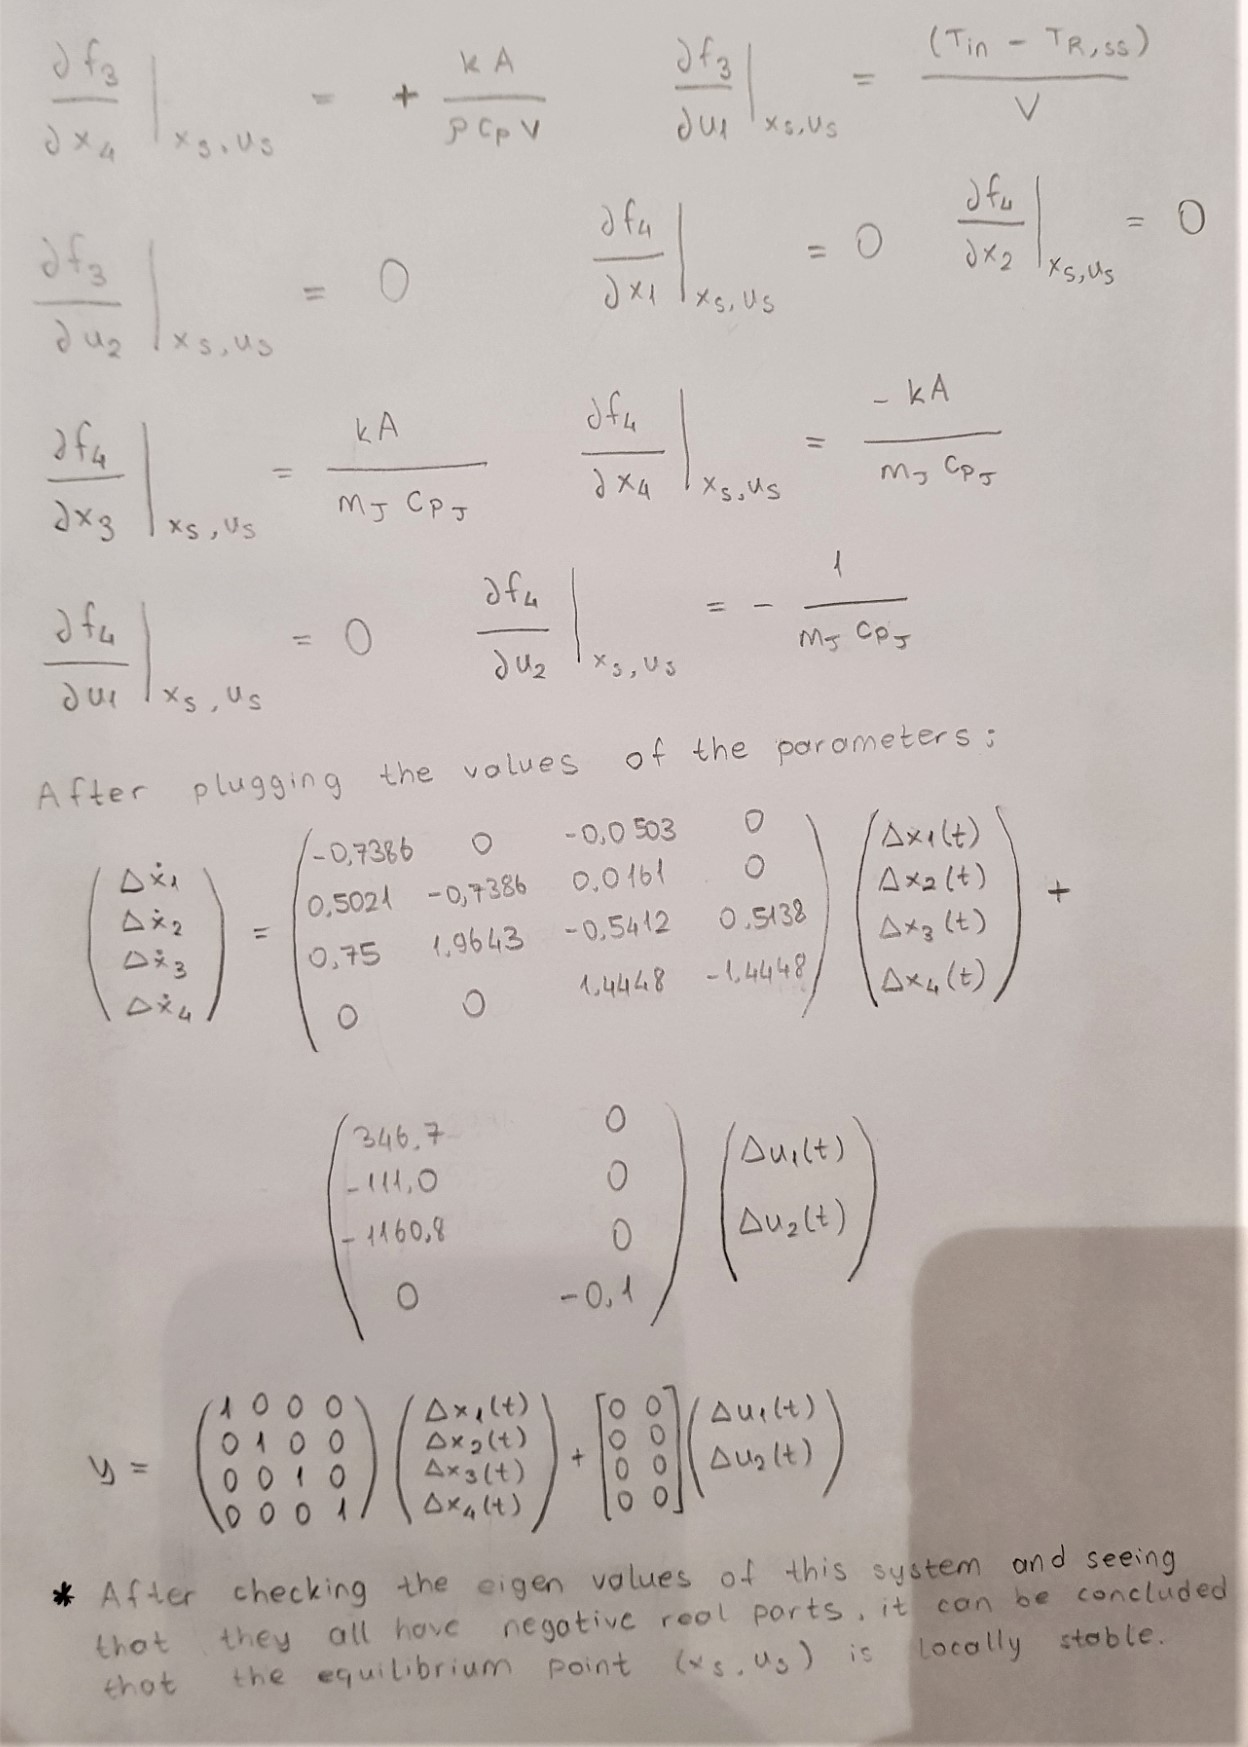 ∂f3/∂x4 |xs,us = + kA/(ρ Cp V)   ∂f3/∂u1 |xs,us = (Tin - TR,ss)/V
∂f3/∂u2 |xs,us = 0   ∂f4/∂x1 |xs,us = 0   ∂f4/∂x2 |xs,us = 0
∂f4/∂x3 |xs,us = kA/(mJ CPJ)   ∂f4/∂x4 |xs,us = -kA/(mJ CPJ)
∂f4/∂u1 |xs,us = 0   ∂f4/∂u2 |xs,us = - 1/(mJ CPJ)
After plugging the values of the parameters:
(Δẋ1 Δẋ2 Δẋ3 Δẋ4) =
(-0,7386 0 -0,0503 0
0,5021 -0,7386 0,0161 0
0,75 1,9643 -0,5412 0,5138
0 0 1,4448 -1,4448)
(Δx1(t) Δx2(t) Δx3(t) Δx4(t)) +
(346,7 0
-111,0 0
-1160,8 0
0 -0,1)
(Δu1(t) Δu2(t))
y =
(1 0 0 0
0 1 0 0
0 0 1 0
0 0 0 1)
(Δx1(t) Δx2(t) Δx3(t) Δx4(t)) +
[0 0
0 0
0 0
0 0]
(Δu1(t) Δu2(t))
* After checking the eigen values of this system and seeing
that they all have negative real parts, it can be concluded
that the equilibrium point (xs,us) is locally stable.